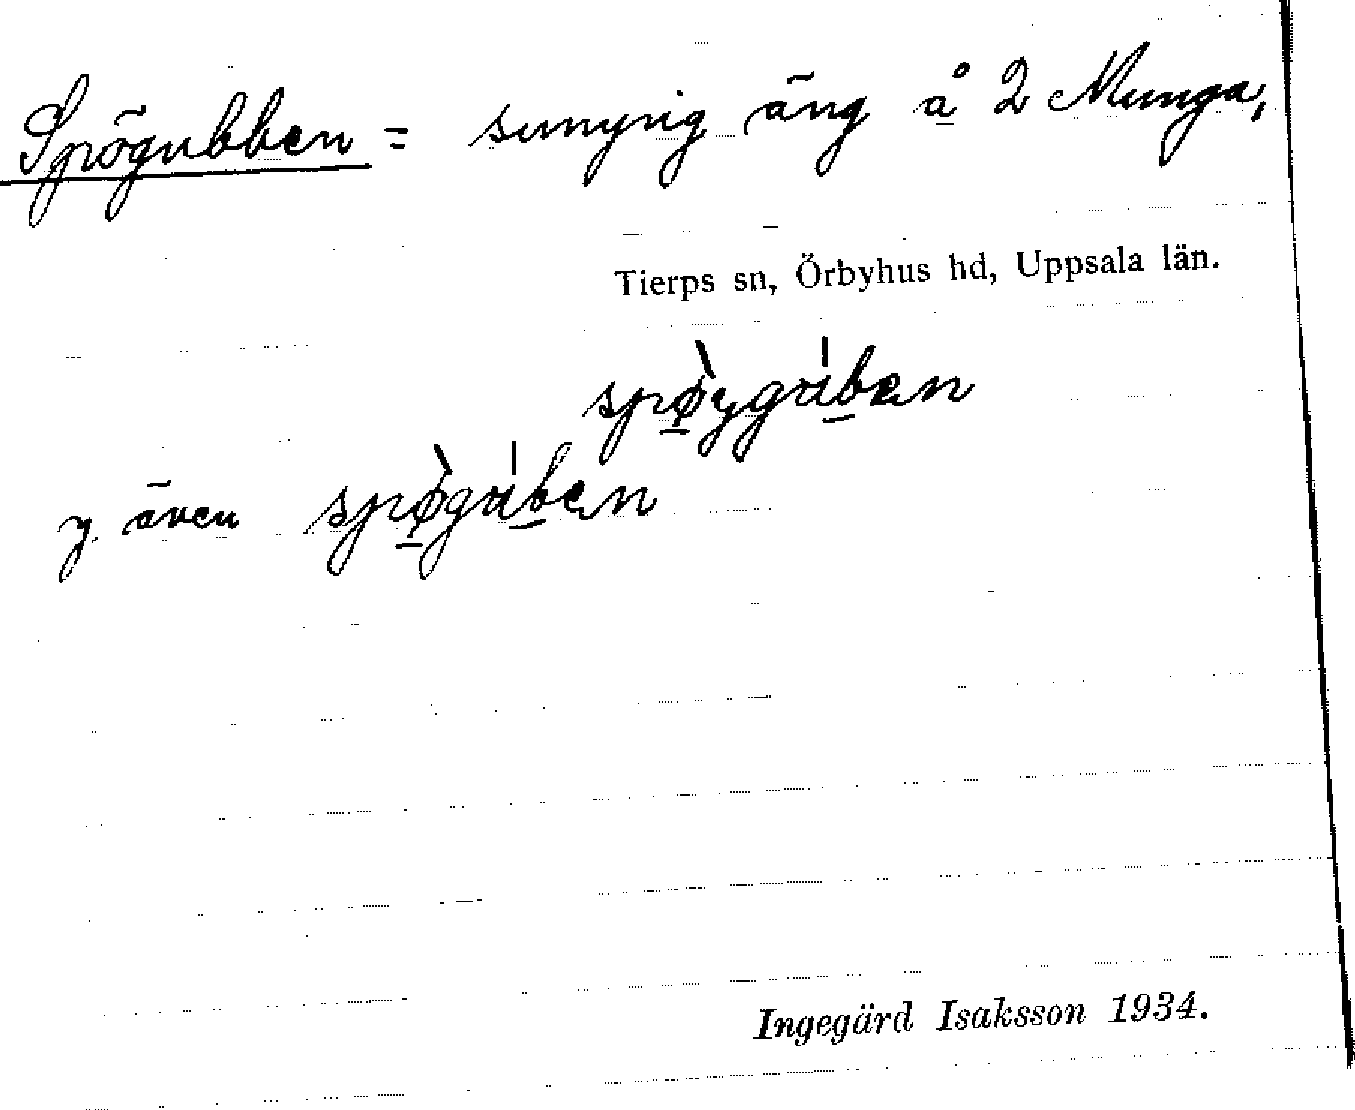 Spögubben = sumprig äng å 2 Munga,
Tierps sn, Örbyhus hd, Uppsala län.
spø̀yguben
y. även spø̀guben
Ingegärd Isaksson 1934.